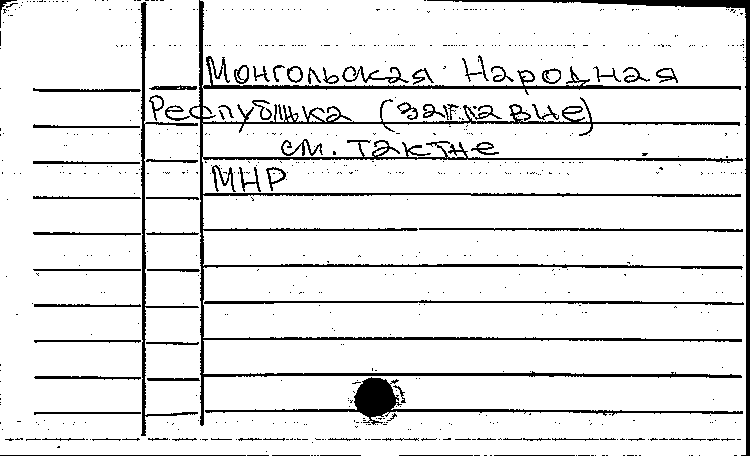 Монгольская Народная
Республика (заглавие)
см. также
МНР